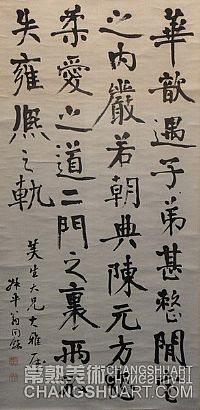 華歆遇子弟甚整閒室
之內嚴若朝典陳元方恣
柔愛之道二門之裏兩不
失雍熙之軌
大兄大雅屬
叔平翁同龢
常熟美術
CHANGSHUART